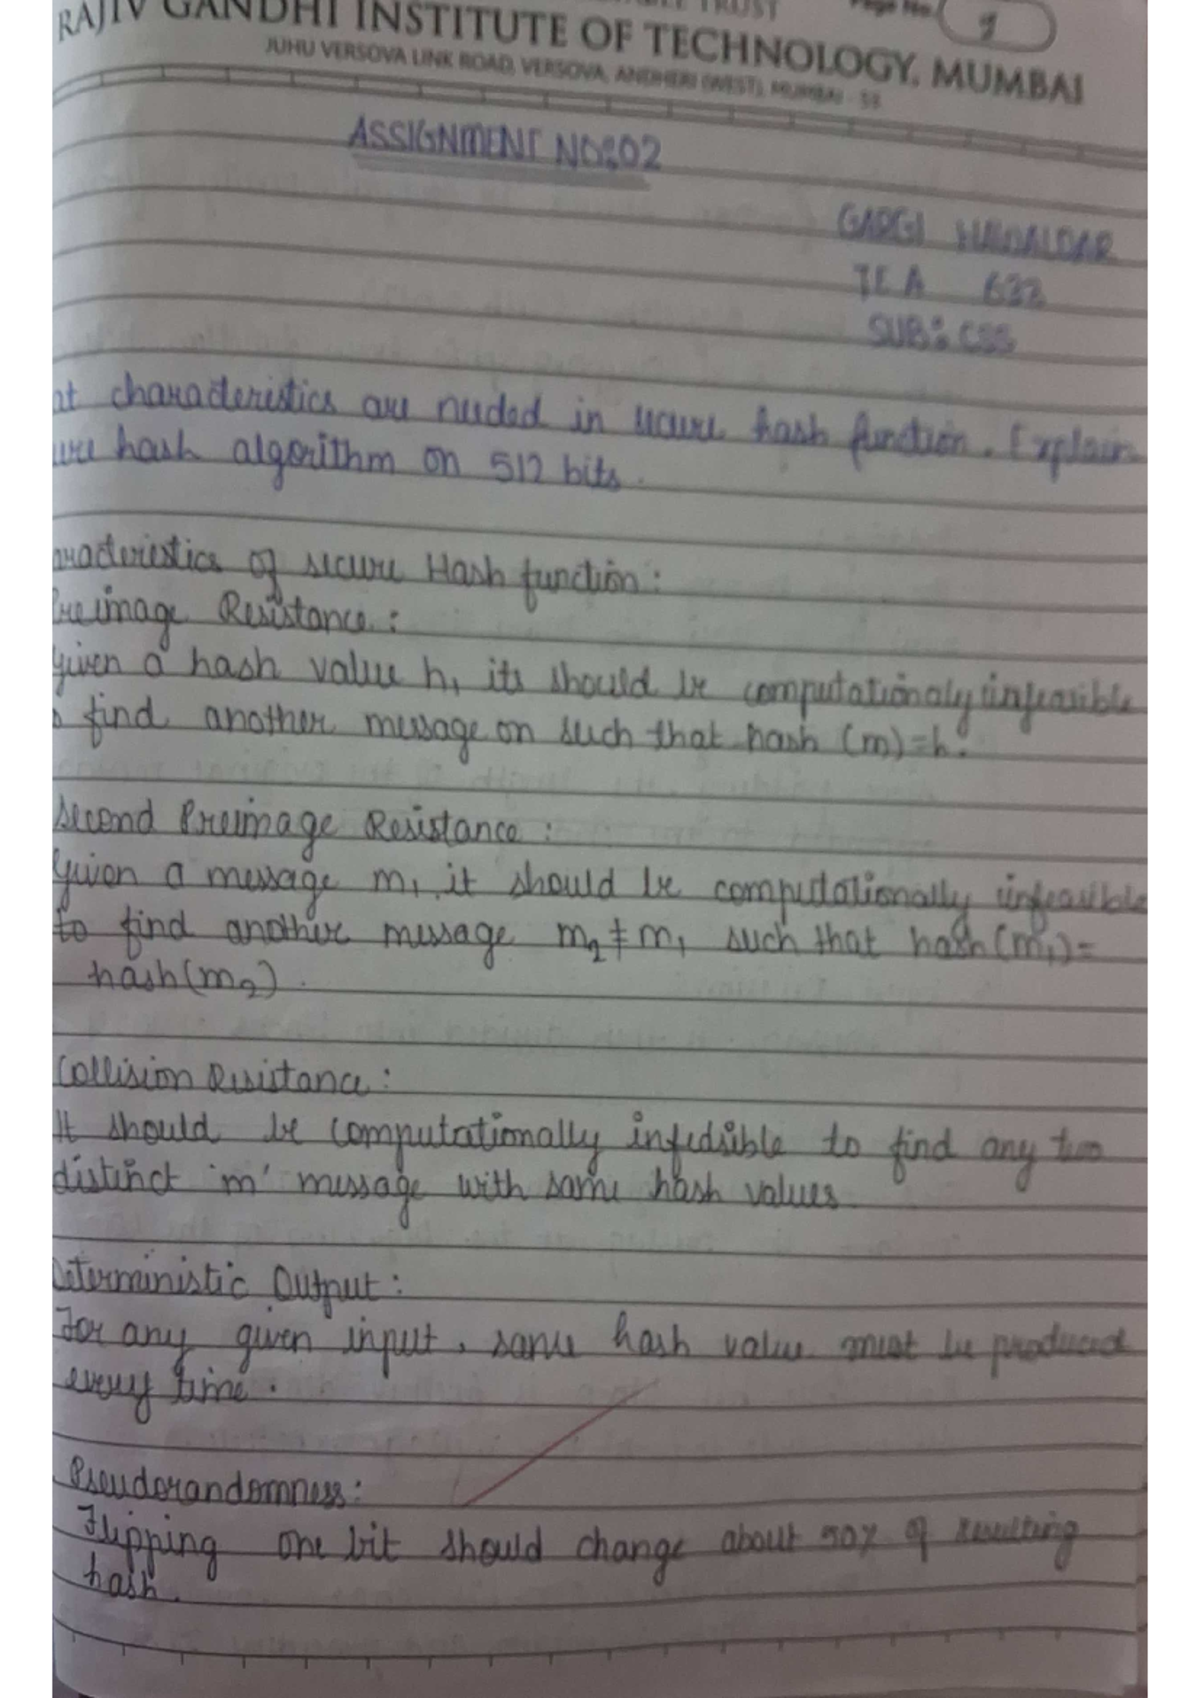 TRUST
Page No. 1
RAJIV GANDHI INSTITUTE OF TECHNOLOGY, MUMBAI
JUHU VERSOVA LINK ROAD, VERSOVA, ANDHERI (WEST), MUMBAI - 53
ASSIGNMENT NO:02
TE A 632
SUB: CSS
at characteristics are needed in secure hash function. Explain
ure hash algorithm on 512 bits.
aracteristics of secure Hash function:
Preimage Resistance:
Given a hash value h, its should be computationaly infeasible
o find another message on such that hash (m)=h.
Second Preimage Resistance:
Given a message m, it should be computationally infeasible
to find another message m2 ≠ m1 such that hash(m1)=
hash(m2).
Collision Resistance:
It should be computationally infedsible to find any two
distinct 'm' message with same hash values
Deterministic Output:
For any given input, same hash value must be produced
every time.
Pseudorandomness:
Flipping one bit should change about 50% of resulting
hash.